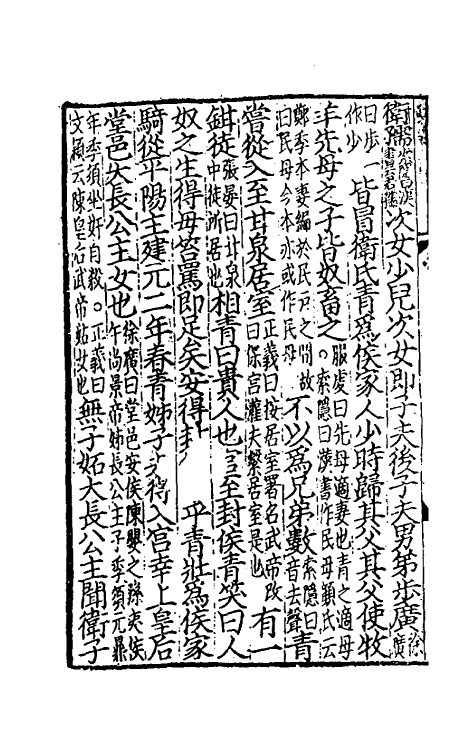 衛孺徐廣曰漢書云君孺次女少兒次女即子夫後子夫男弟步廣徐廣
曰步一作少皆冒衛氏青為侯家人少時歸其父其父使牧
羊先母之子皆奴畜之服虔曰先母適妻也青之適母○索隱曰漢書作民母顏氏云
鄭季本妻編於民戶之間故曰民母今本亦或作民母不以為兄弟數索隱曰音去聲青
嘗從入至甘泉居室正義曰按居室署名武帝改曰保宮灌夫繫居室是也有一
鉗徒張晏曰甘泉中徒所居也相青曰貴人也官至封侯青笑曰人
奴之生得毋笞罵即足矣安得封 乎青壯為侯家
騎從平陽主建元二年春青姊子夫得入宮幸上皇后
堂邑大長公主女也徐廣曰堂邑安侯陳嬰之孫夷侯午尚景帝姊長公主子季須元鼎
年季須坐奸自殺○正義曰文穎云陳皇后武帝姑女也無子妬大長公主聞衛子